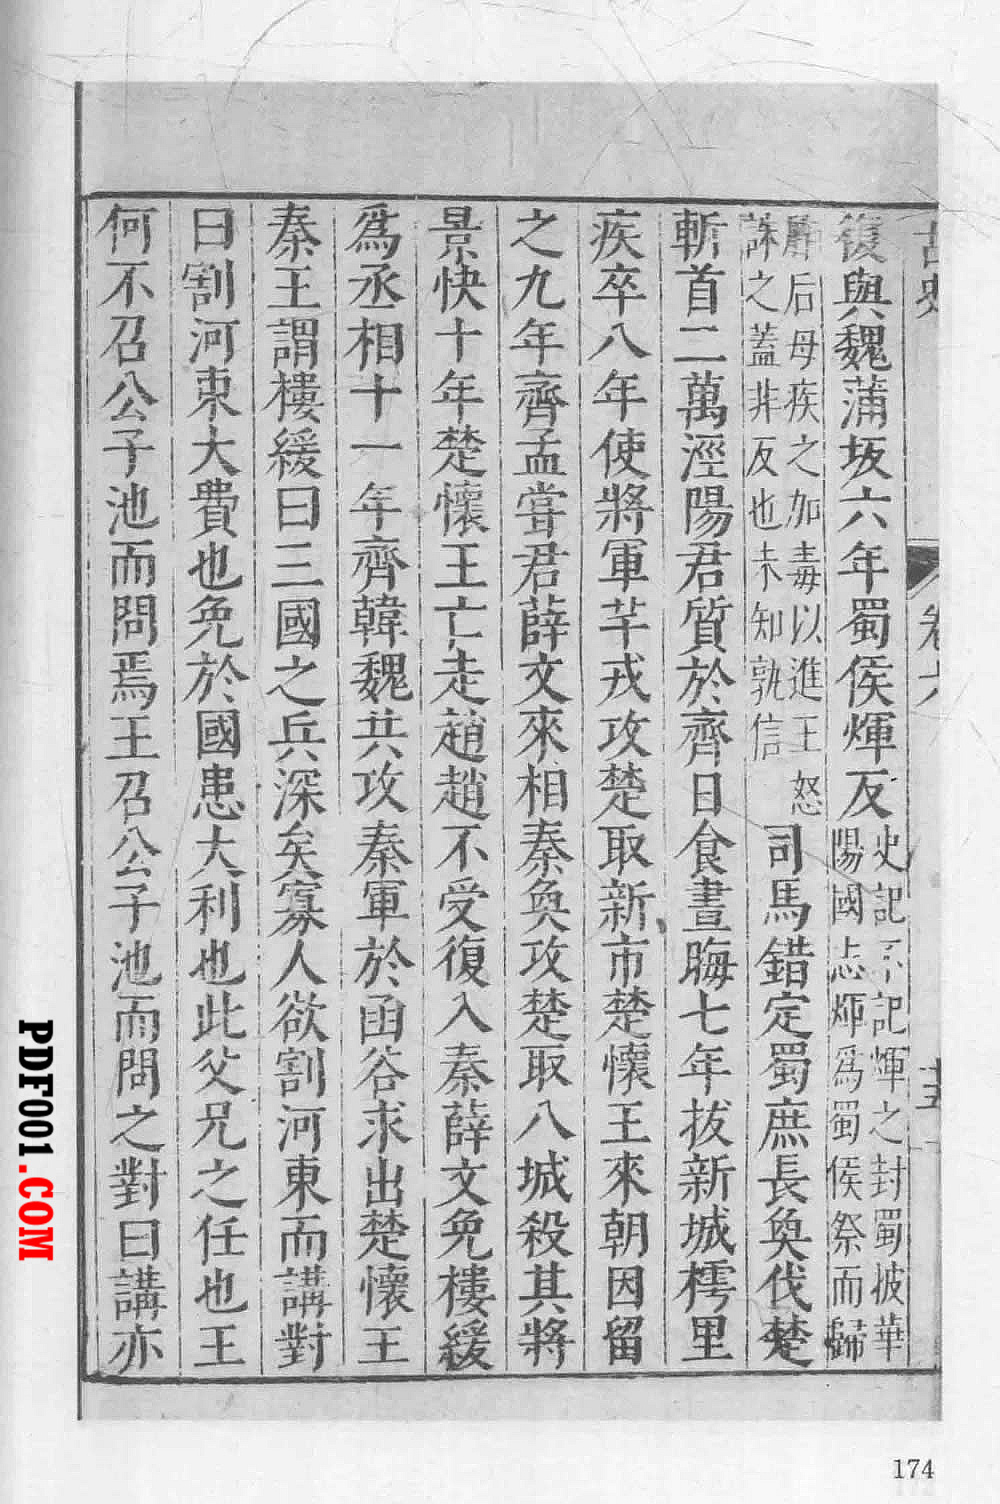 古史
卷六
十五
復與魏蒲坂六年蜀侯煇反史記不記煇之封蜀按華
陽國志煇爲蜀侯祭而歸
胙后母疾之加毒以進王怒
誅之蓋非反也未知孰信司馬錯定蜀庶長奐伐楚
斬首二萬涇陽君質於齊日食晝晦七年拔新城樗里
疾卒八年使將軍芊戎攻楚取新市楚懷王來朝因留
之九年齊孟嘗君薛文來相秦奐攻楚取八城殺其將
景快十年楚懷王亡走趙趙不受復入秦薛文免樓緩
爲丞相十一年齊韓魏共攻秦軍於函谷求出楚懷王
秦王謂樓緩曰三國之兵深矣寡人欲割河東而講對
曰割河東大費也免於國患大利也此父兄之任也王
何不召公子池而問焉王召公子池而問之對曰講亦
PDF001.COM
174